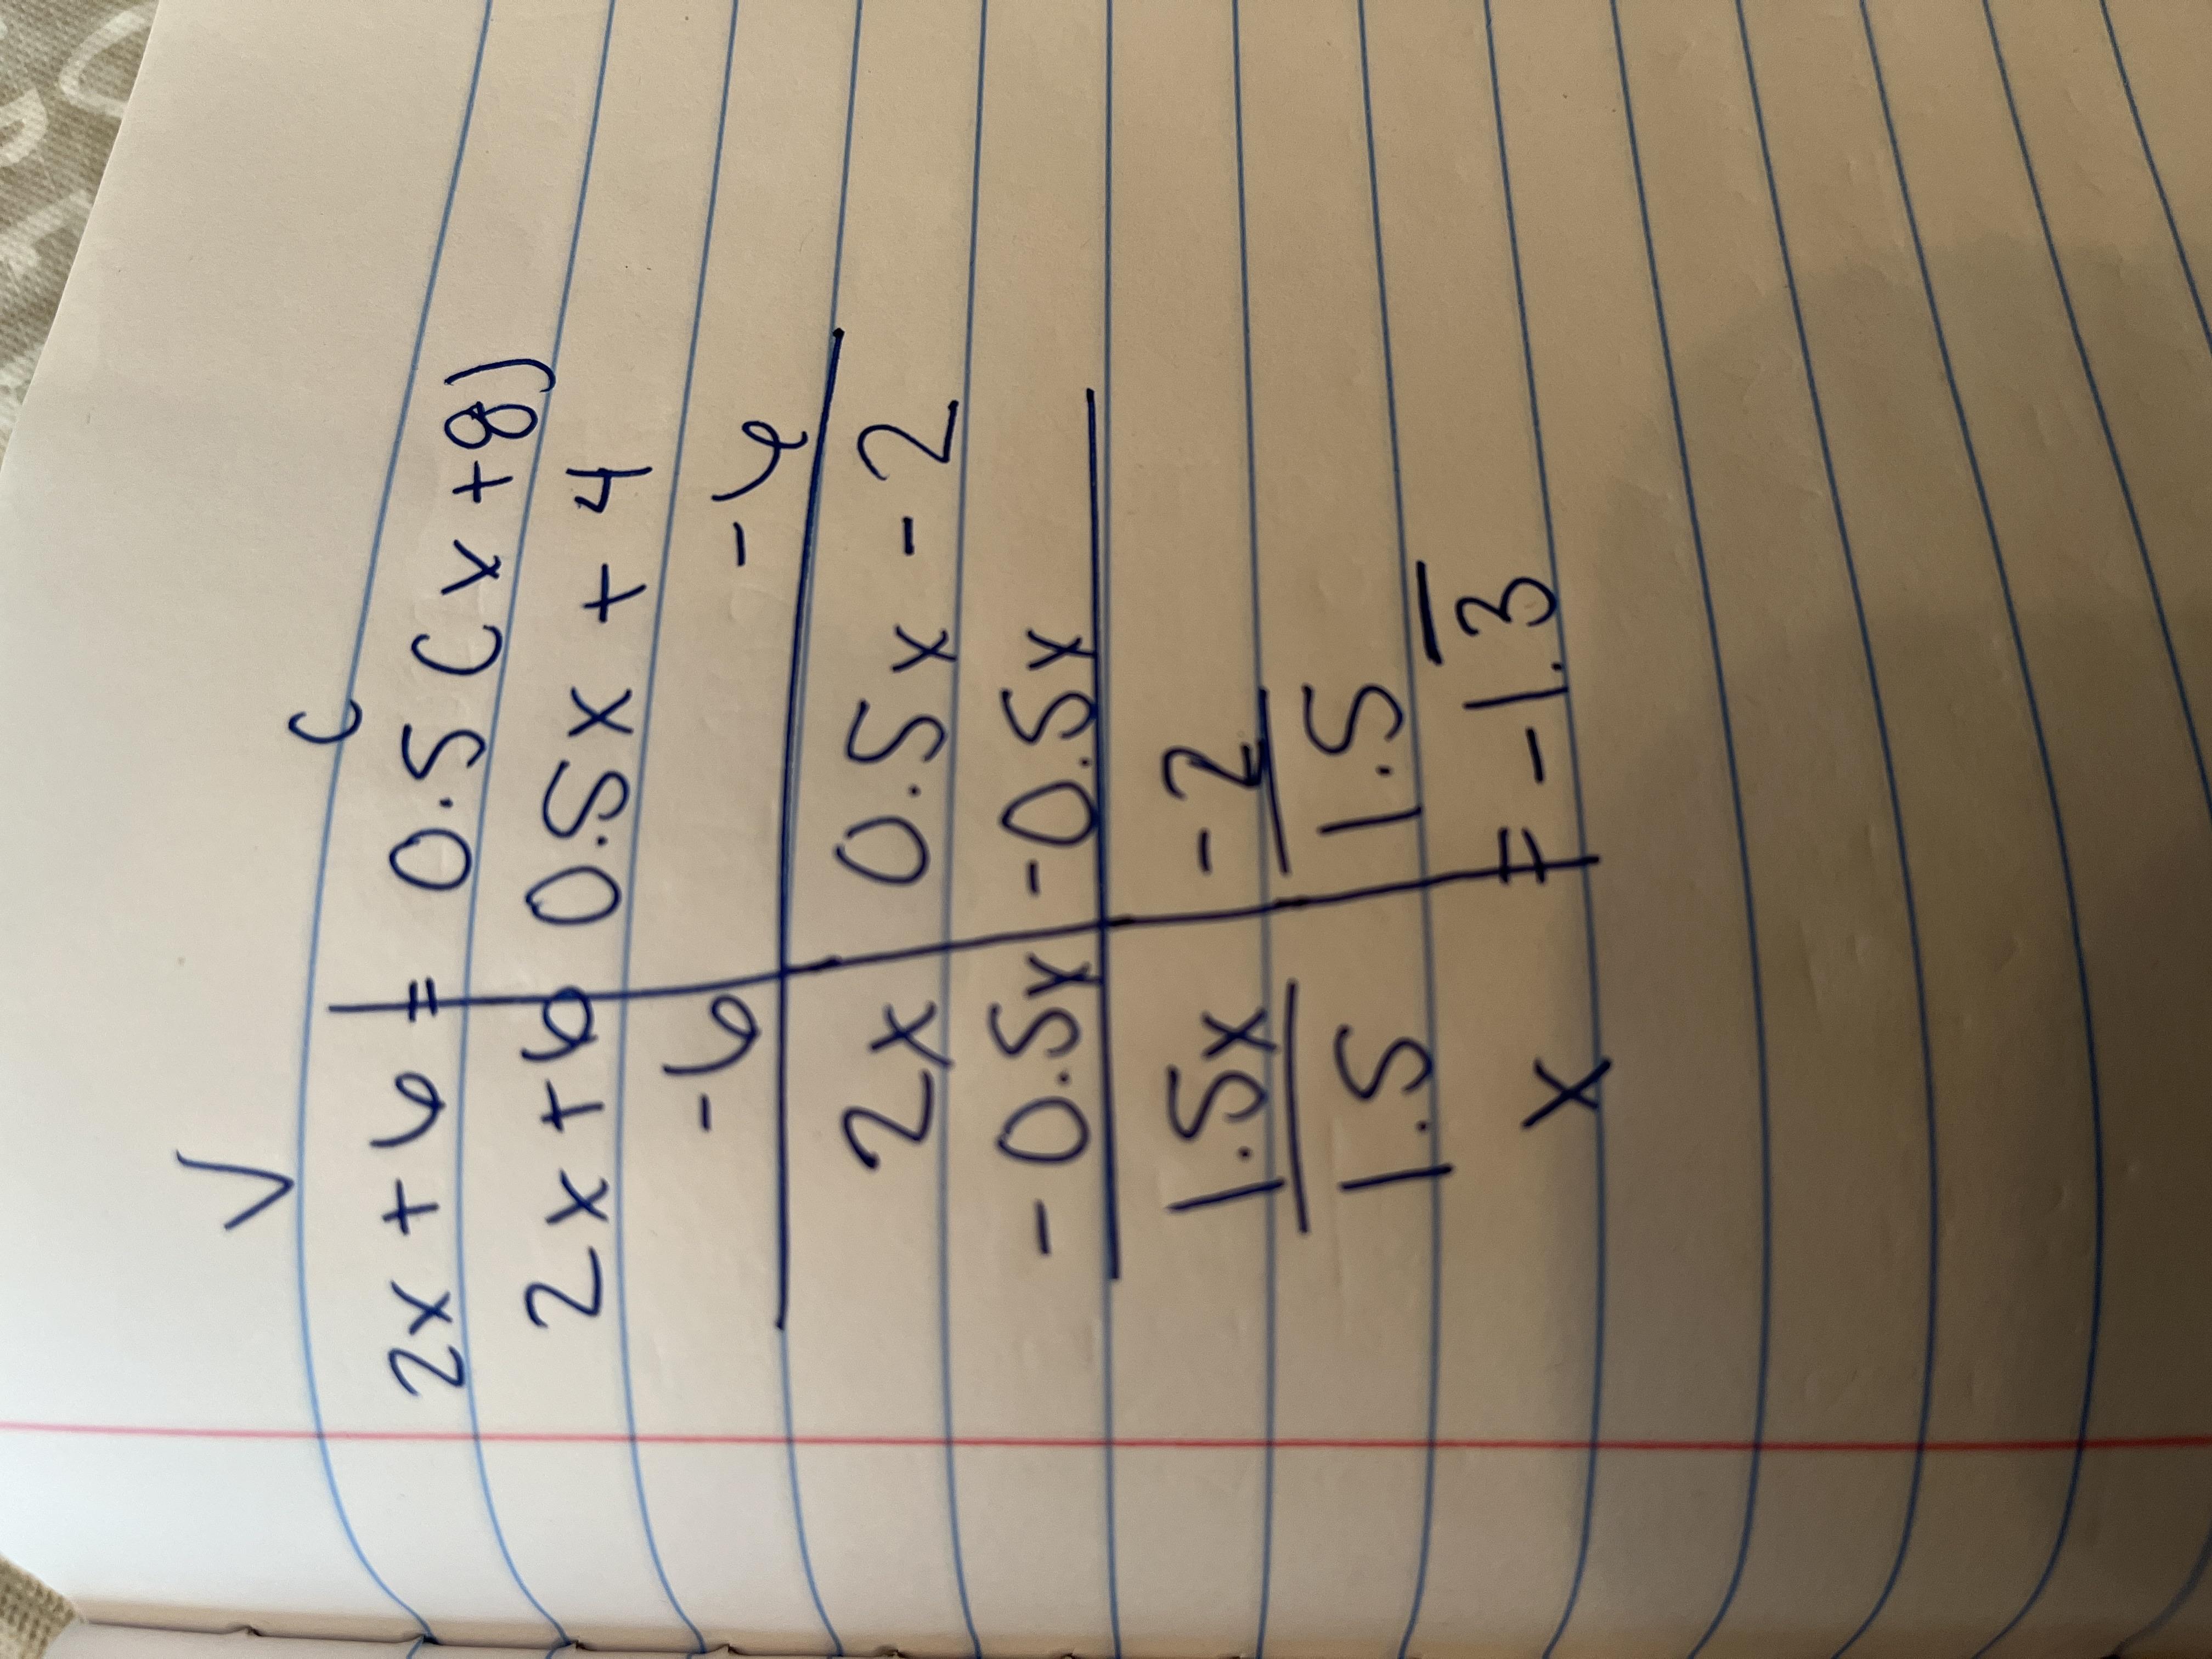 V C
2x + 6 = 0.5 (x +8)
2x +6 0.5x + 4
-6 -6
2x 0.5x - 2
- 0.5x -0.5x
1.5x -2
1.5 1.5
x = -1.3̅